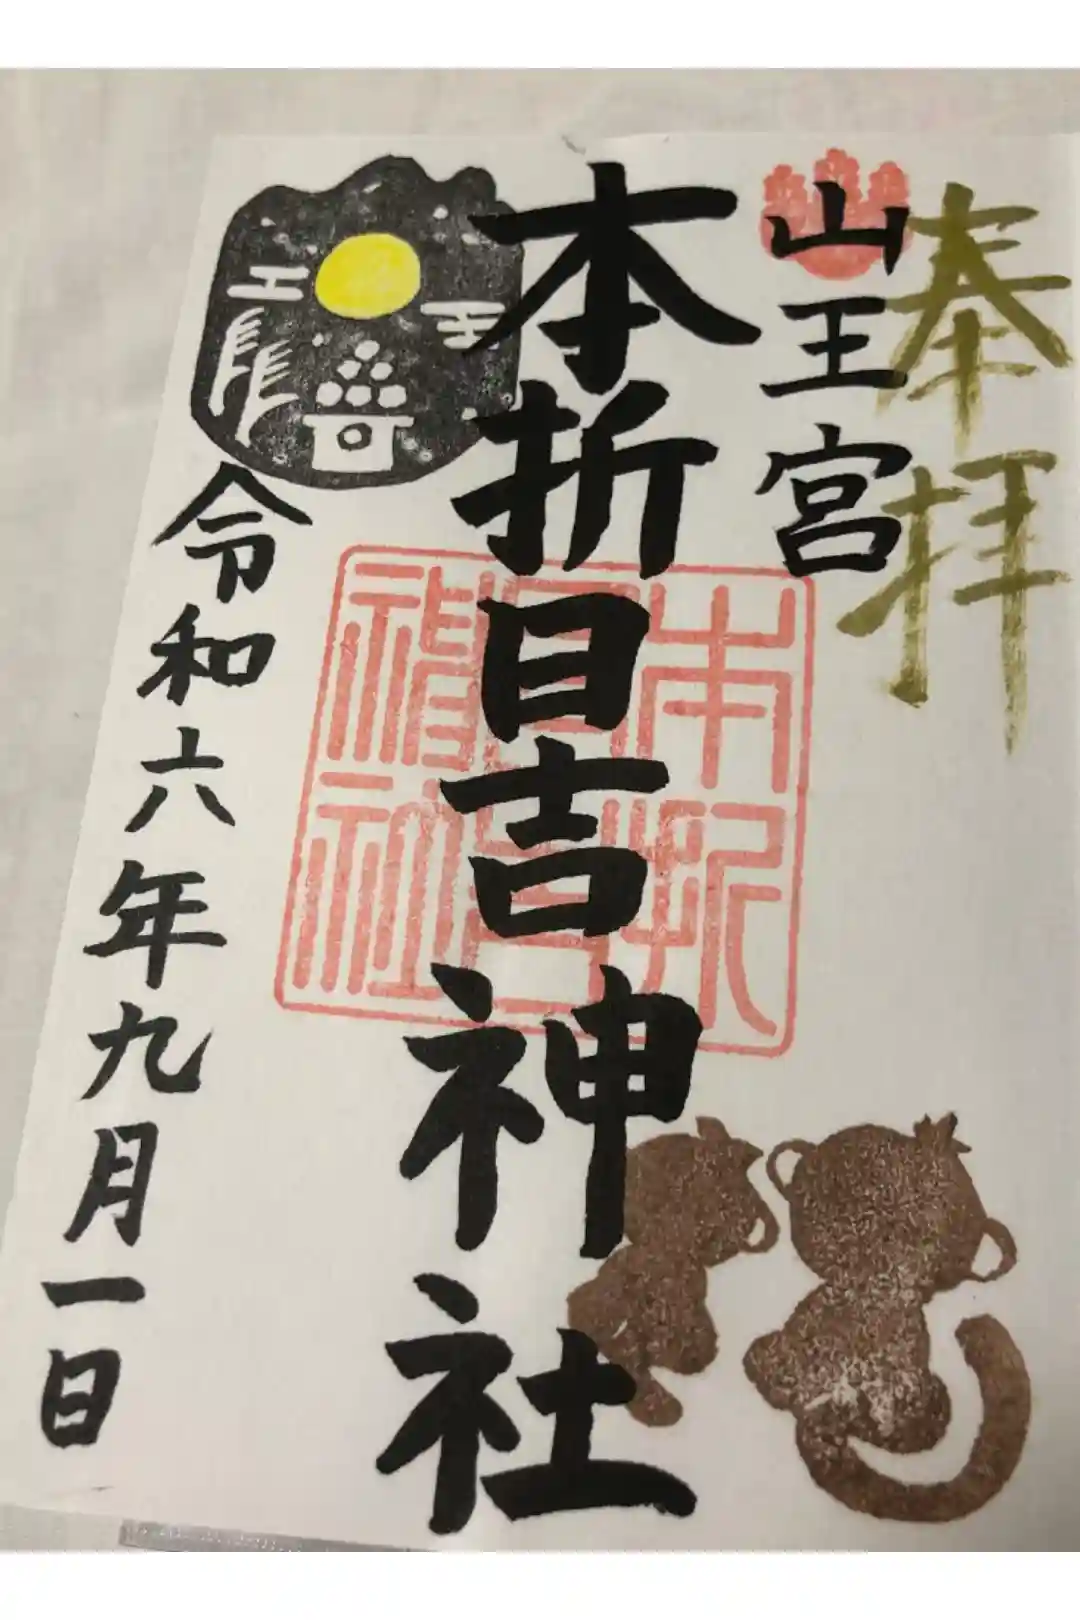 奉拝
山王宮
本折日吉神社
本折日吉神社
令和六年九月一日